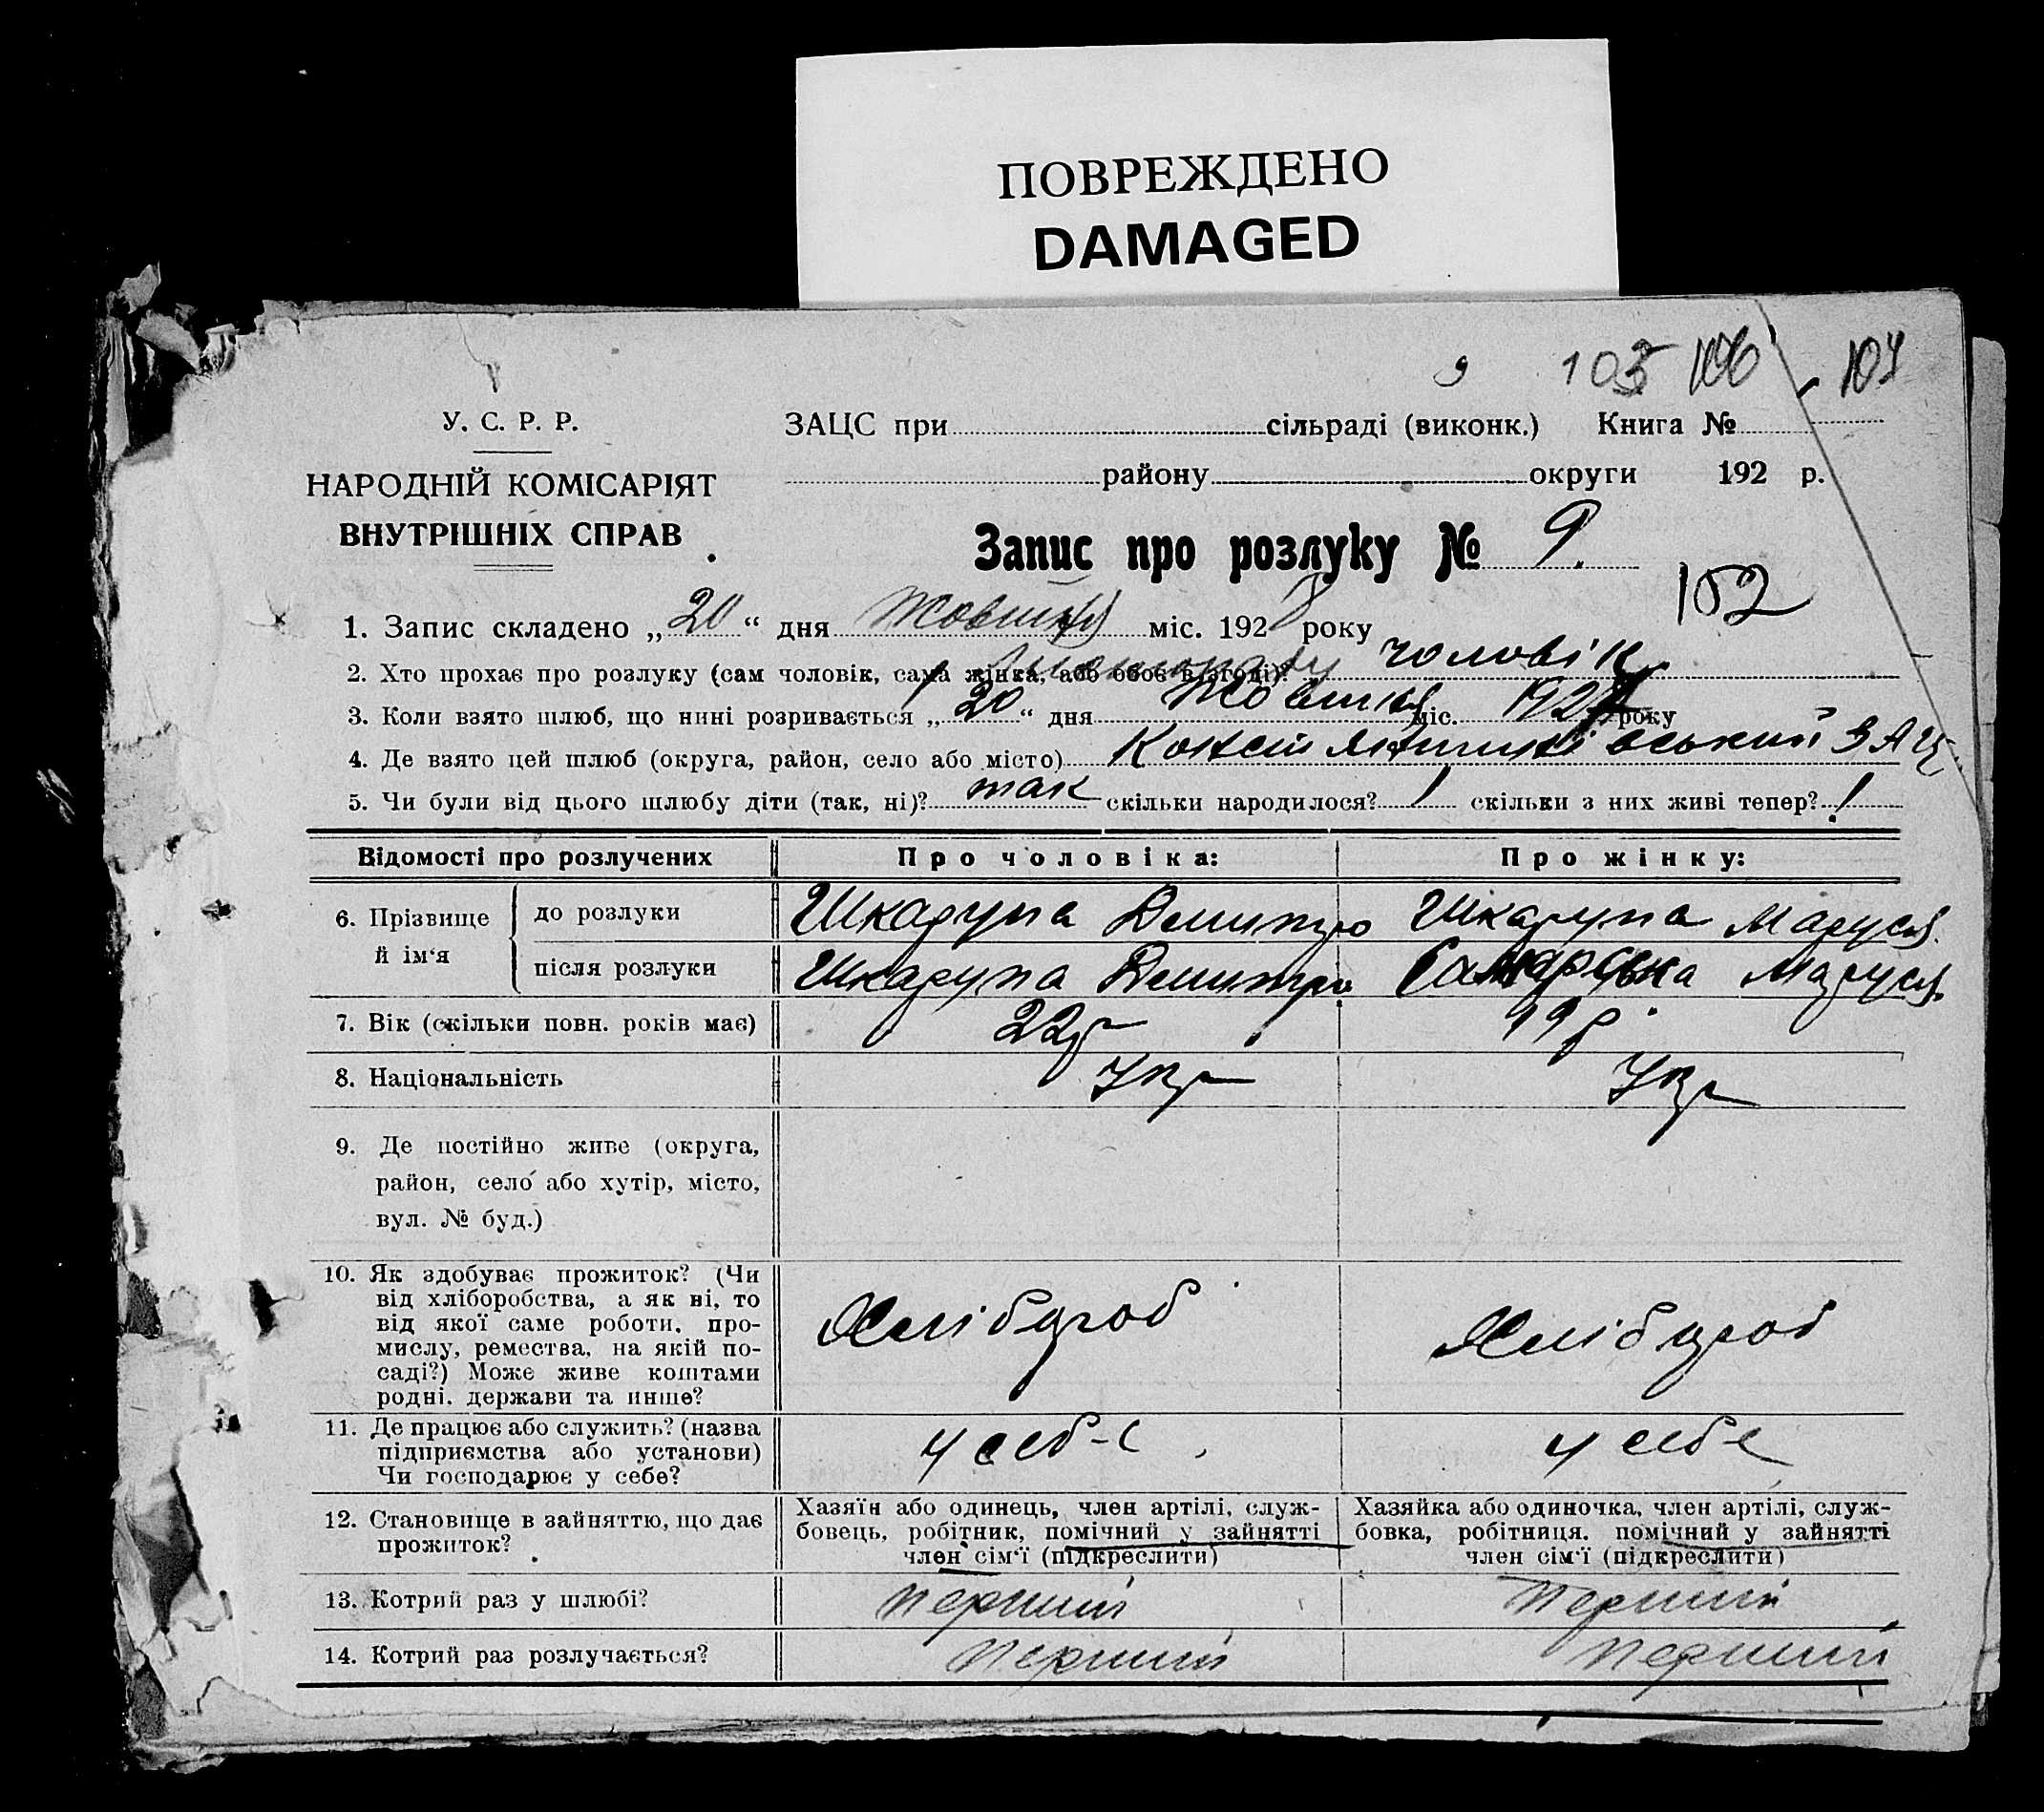 ПОВРЕЖДЕНО
DAMAGED
9 103 106 104
У. С. Р. Р.
ЗАЦС при сільраді (виконк.) Книга №
НАРОДНІЙ КОМІСАРІЯТ
району округи 192 р.
ВНУТРІШНІХ СПРАВ
Запис про розлуку № 9.
102
1. Запис складено „20“ дня Жовтня міс. 1928 року
2. Хто прохає про розлуку (сам чоловік, сама жінка, або обоє в згоді)? чоловік
3. Коли взято шлюб, що нині розривається „20“ дня Жовтня міс. 1927 року
4. Де взято цей шлюб (округа, район, село або місто) Констянтинівський ЗАЦ
5. Чи були від цього шлюбу діти (так, ні)? так скільки народилося? 1 скільки з них живі тепер? 1
Відомості про розлучених Про чоловіка: Про жінку:
6. Прізвище й ім‘я
до розлуки Шкарупа Дмитро Шкарупа Маруся
після розлуки Шкарупа Дмитро Самарська Маруся
7. Вік (скільки повн. років має) 22 р 19 р
8. Національність Укр Укр
9. Де постійно живе (округа,
район, село або хутір, місто,
вул. № буд.)
10. Як здобуває прожиток? (Чи
від хліборобства, а як ні, то
від якої саме роботи, про-
мислу, ремества, на якій по-
саді?) Може живе коштами
родні, держави та инше?
Хлібороб Хлібороб
11. Де працює або служить? (назва
підприємства або установи)
Чи господарює у себе?
у себе у себе
12. Становище в зайняттю, що дає
прожиток?
Хазяїн або одинець, член артілі, служ-
бовець, робітник, помічний у зайнятті
член сім‘ї (підкреслити)
Хазяйка або одиночка, член артілі, служ-
бовка, робітниця, помічний у зайнятті
член сім‘ї (підкреслити)
13. Котрий раз у шлюбі? перший перший
14. Котрий раз розлучається? перший перший